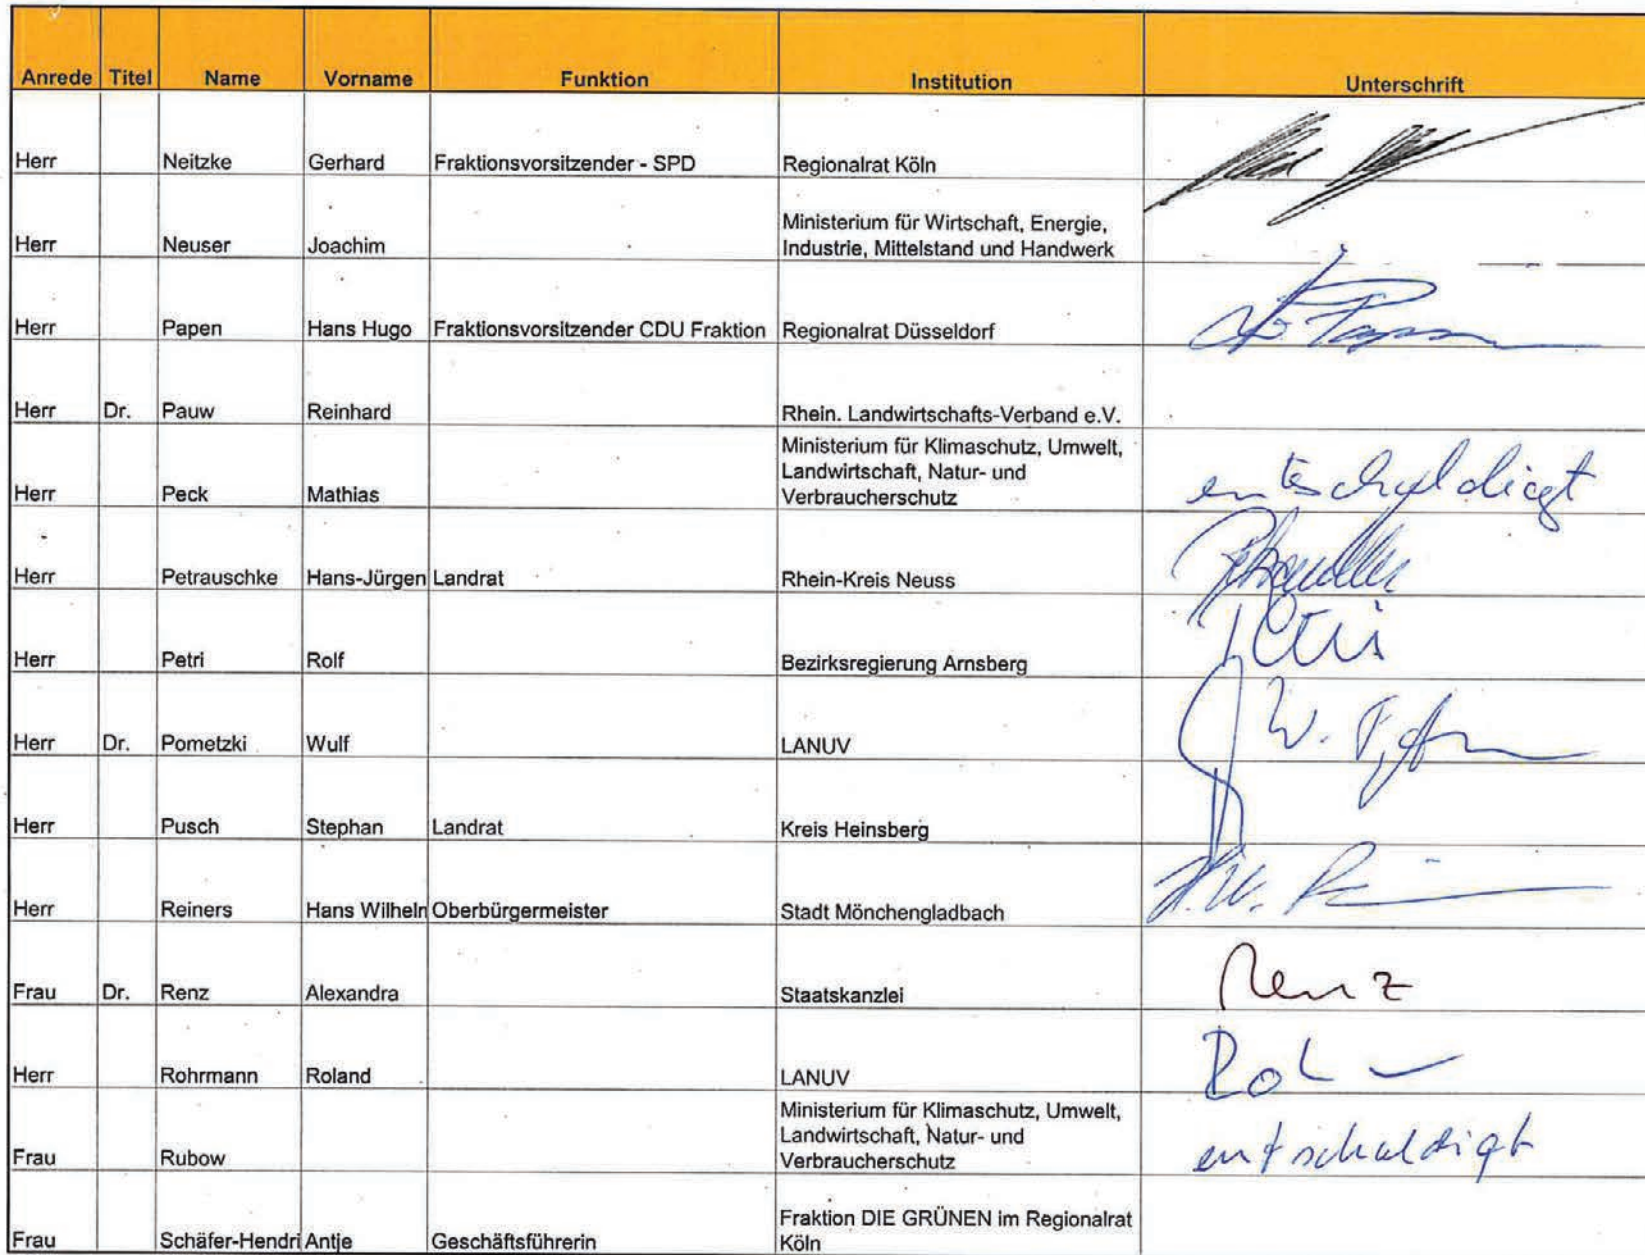 Anrede Titel Name Vorname Funktion Institution Unterschrift
Herr Neitzke Gerhard Fraktionsvorsitzender - SPD Regionalrat Köln
Herr Neuser Joachim Ministerium für Wirtschaft, Energie,
Industrie, Mittelstand und Handwerk
Herr Papen Hans Hugo Fraktionsvorsitzender CDU Fraktion Regionalrat Düsseldorf
Herr Dr. Pauw Reinhard Rhein. Landwirtschafts-Verband e.V.
Herr Peck Mathias Ministerium für Klimaschutz, Umwelt,
Landwirtschaft, Natur- und
Verbraucherschutz entschuldigt
Herr Petrauschke Hans-Jürgen Landrat Rhein-Kreis Neuss
Herr Petri Rolf Bezirksregierung Arnsberg
Herr Dr. Pometzki Wulf LANUV
Herr Pusch Stephan Landrat Kreis Heinsberg
Herr Reiners Hans Wilheln Oberbürgermeister Stadt Mönchengladbach
Frau Dr. Renz Alexandra Staatskanzlei Renz
Herr Rohrmann Roland LANUV
Frau Rubow Ministerium für Klimaschutz, Umwelt,
Landwirtschaft, Natur- und
Verbraucherschutz entschuldigt
Frau Schäfer-Hendri Antje Geschäftsführerin Fraktion DIE GRÜNEN im Regionalrat
Köln